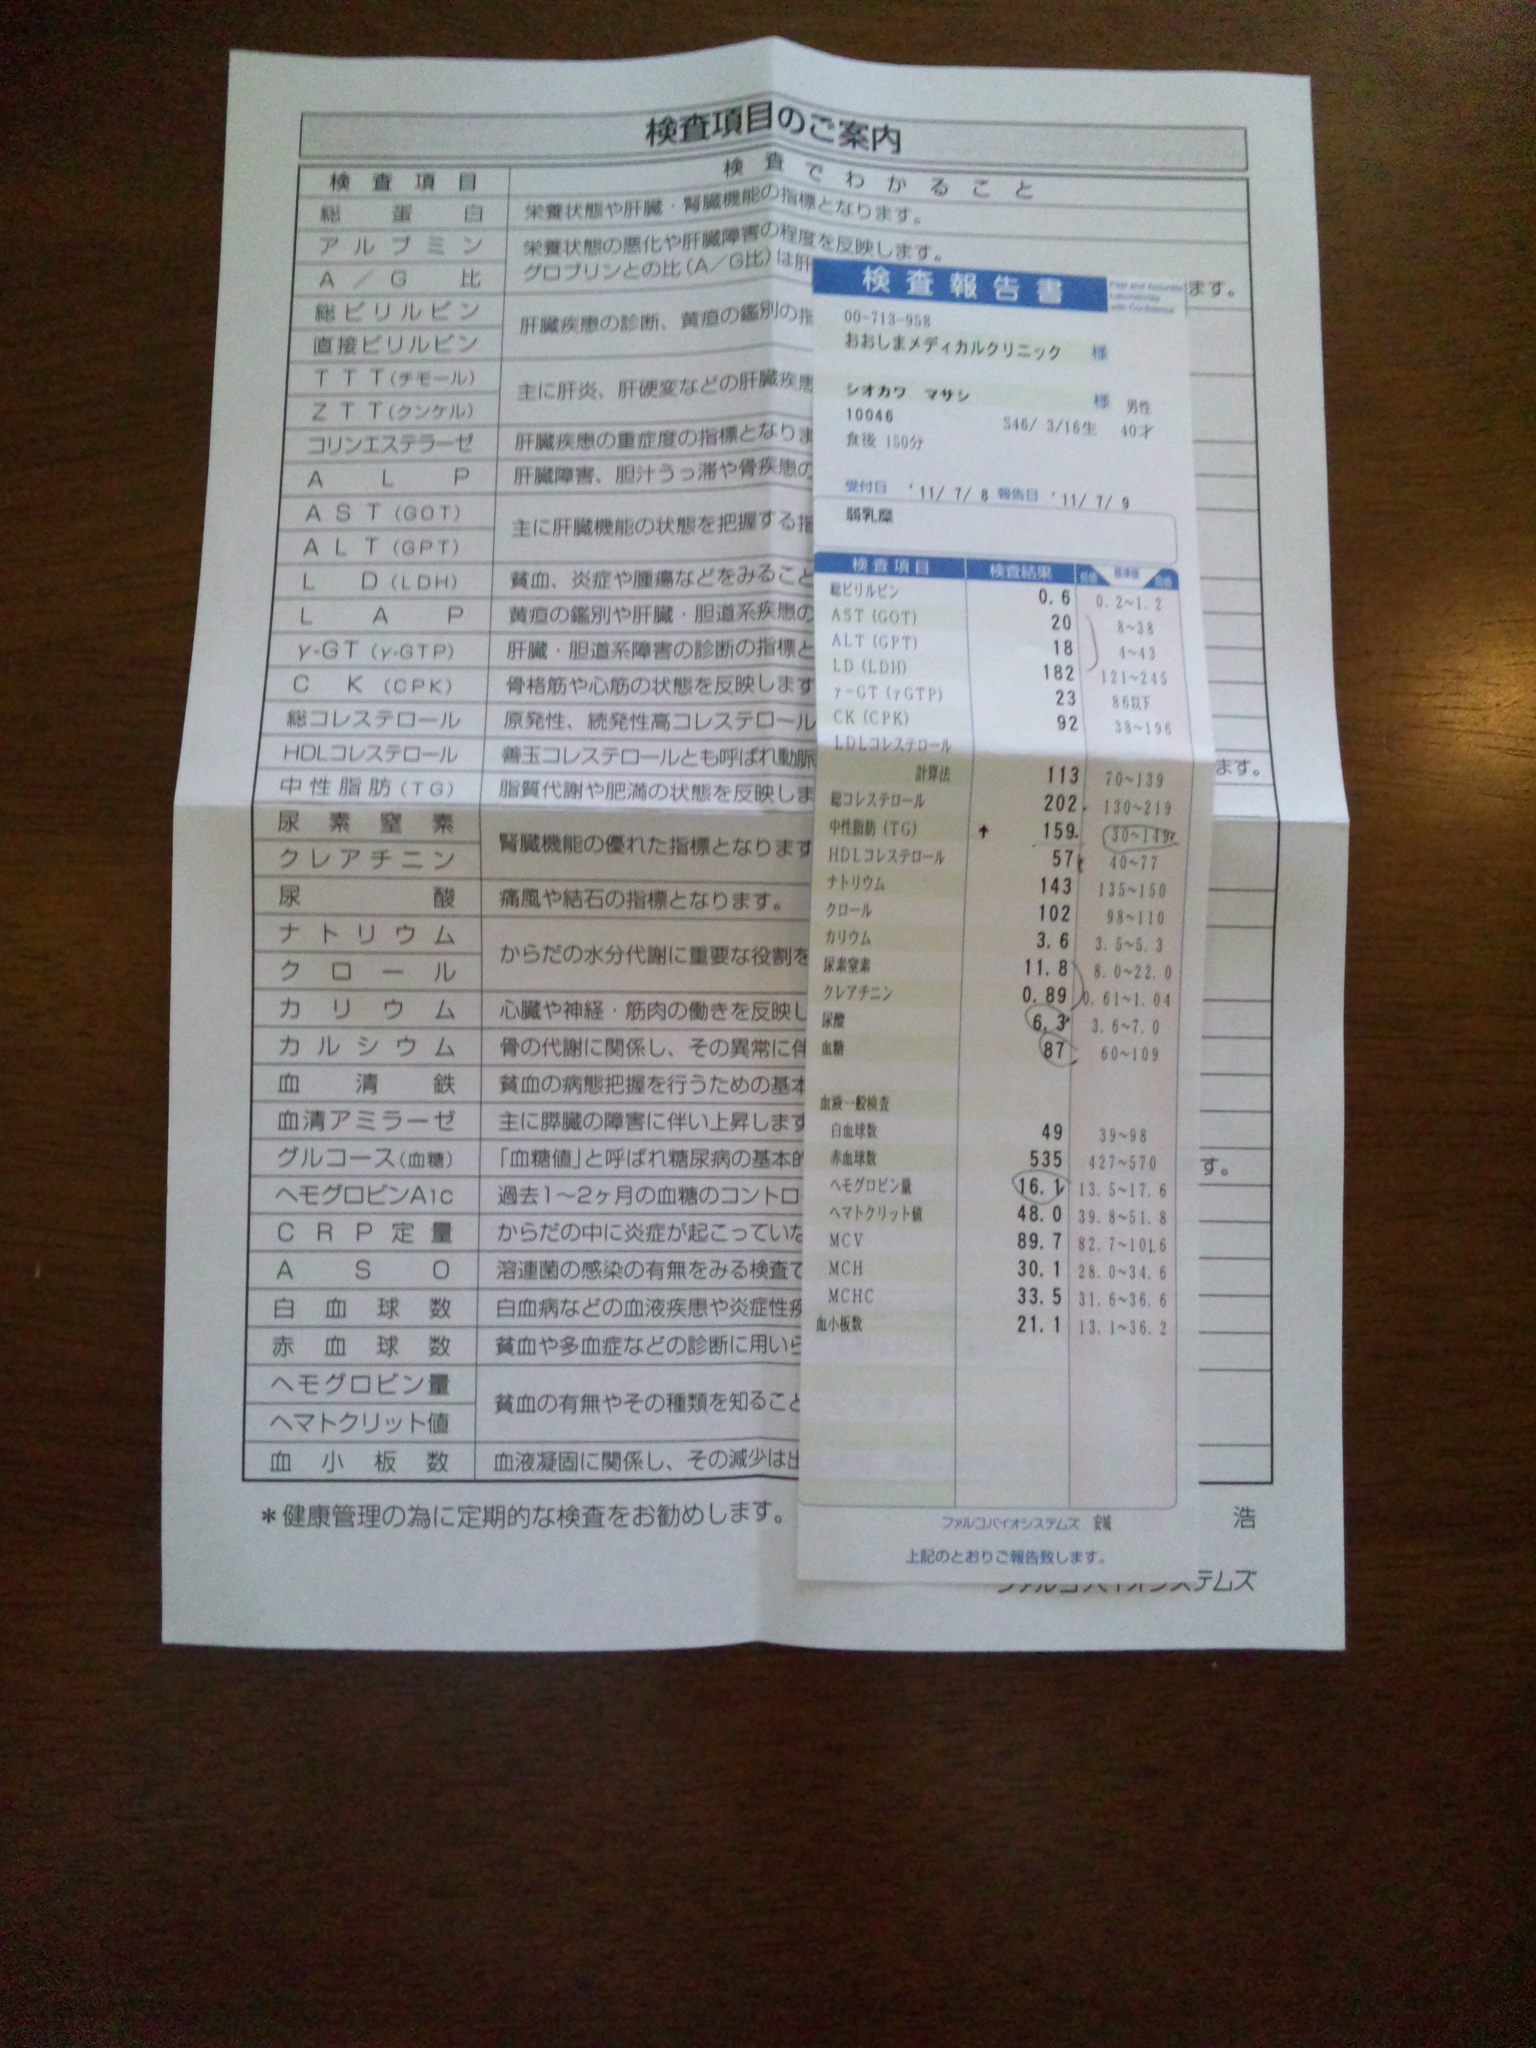 検査項目のご案内
検査項目 検査でわかること
総蛋白 栄養状態や肝臓・腎臓機能の指標となります。
アルブミン 栄養状態の悪化や肝臓障害の程度を反映します。
A/G比 グロブリンとの比(A/G比)は肝 ます。
総ビリルビン 肝臓疾患の診断、黄疸の鑑別の指
直接ビリルビン
TTT(チモール) 主に肝炎、肝硬変などの肝臓疾患
ZTT(クンケル)
コリンエステラーゼ 肝臓疾患の重症度の指標となりま
ALP 肝臓障害、胆汁うっ滞や骨疾患の
AST(GOT) 主に肝臓機能の状態を把握する指
ALT(GPT)
LD(LDH) 貧血、炎症や腫瘍などをみること
LAP 黄疸の鑑別や肝臓・胆道系疾患の
γ-GT(γ-GTP) 肝臓・胆道系障害の診断の指標と
CK(CPK) 骨格筋や心筋の状態を反映します
総コレステロール 原発性、続発性高コレステロール
HDLコレステロール 善玉コレステロールとも呼ばれ動脈 ます。
中性脂肪(TG) 脂質代謝や肥満の状態を反映しま
尿素窒素 腎臓機能の優れた指標となります
クレアチニン
尿酸 痛風や結石の指標となります。
ナトリウム からだの水分代謝に重要な役割を
クロール
カリウム 心臓や神経・筋肉の働きを反映し
カルシウム 骨の代謝に関係し、その異常に伴
血清鉄 貧血の病態把握を行うための基本
血清アミラーゼ 主に膵臓の障害に伴い上昇します
グルコース(血糖) 「血糖値」と呼ばれ糖尿病の基本的 す。
ヘモグロビンA1C 過去1～2ヶ月の血糖のコントロー
CRP定量 からだの中に炎症が起こっていな
ASO 溶連菌の感染の有無をみる検査で
白血球数 白血病などの血液疾患や炎症性疾
赤血球数 貧血や多血症などの診断に用いら
ヘモグロビン量 貧血の有無やその種類を知ること
ヘマトクリット値
血小板数 血液凝固に関係し、その減少は出
＊健康管理の為に定期的な検査をお勧めします。 浩
ファルコバイオシステムズ
検査報告書
00-713-958
おおしまメディカルクリニック 様
シオカワ マサシ 様 男性
10046 S46/ 3/16生 40才
食後 150分
受付日 '11/ 7/ 8 報告日 '11/ 7/ 9
弱乳糜
検査項目 検査結果 低値 基準値 高値
総ビリルビン 0.6 0.2~1.2
AST(GOT) 20 8~38
ALT(GPT) 18 4~43
LD(LDH) 182 121~245
γ-GT(γGTP) 23 86以下
CK(CPK) 92 38~196
LDLコレステロール
計算法 113 70~139
総コレステロール 202 130~219
中性脂肪(TG) ↑ 159 30~149
HDLコレステロール 57 40~77
ナトリウム 143 135~150
クロール 102 98~110
カリウム 3.6 3.5~5.3
尿素窒素 11.8 8.0~22.0
クレアチニン 0.89 0.61~1.04
尿酸 6.3 3.6~7.0
血糖 87 60~109
血液一般検査
白血球数 49 39~98
赤血球数 535 427~570
ヘモグロビン量 16.1 13.5~17.6
ヘマトクリット値 48.0 39.8~51.8
MCV 89.7 82.7~101.6
MCH 30.1 28.0~34.6
MCHC 33.5 31.6~36.6
血小板数 21.1 13.1~36.2
ファルコバイオシステムズ 安城
上記のとおりご報告致します。